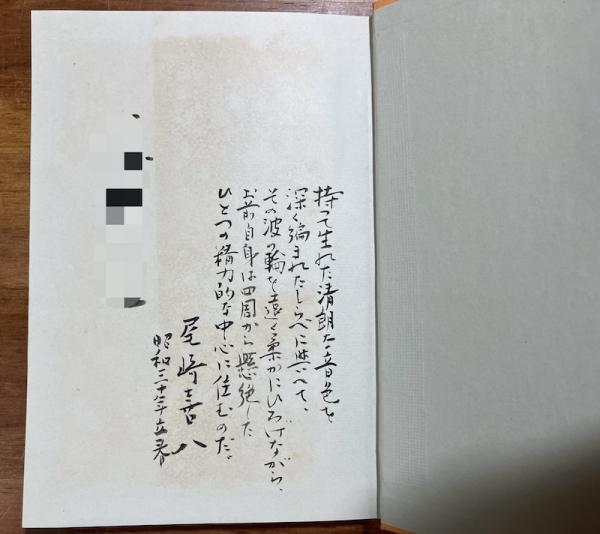 持って生れた清朗な音色を
深く編まれたしらべに與へて、
その波の輪を遠く柔かにひろげながら、
お前自身は四周から懸絶した
ひとつの精力的な中心に住むのだ。
尾崎喜八
昭和三十年立春